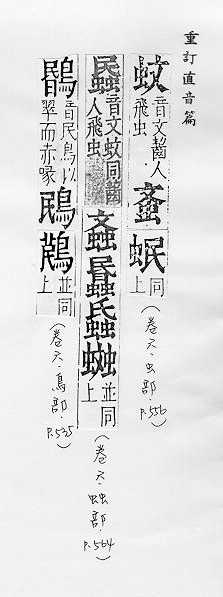 重訂直音篇
蚊 音文齧人飛虫 蚉 同上 (卷六·虫部·P.556)
蟁 音文蚊同齧人飛虫 螡 並同上 (卷六·䖵部·P.564)
音民鳥似翠而赤喙 鴖 並同上 (卷六·鳥部·P.535)